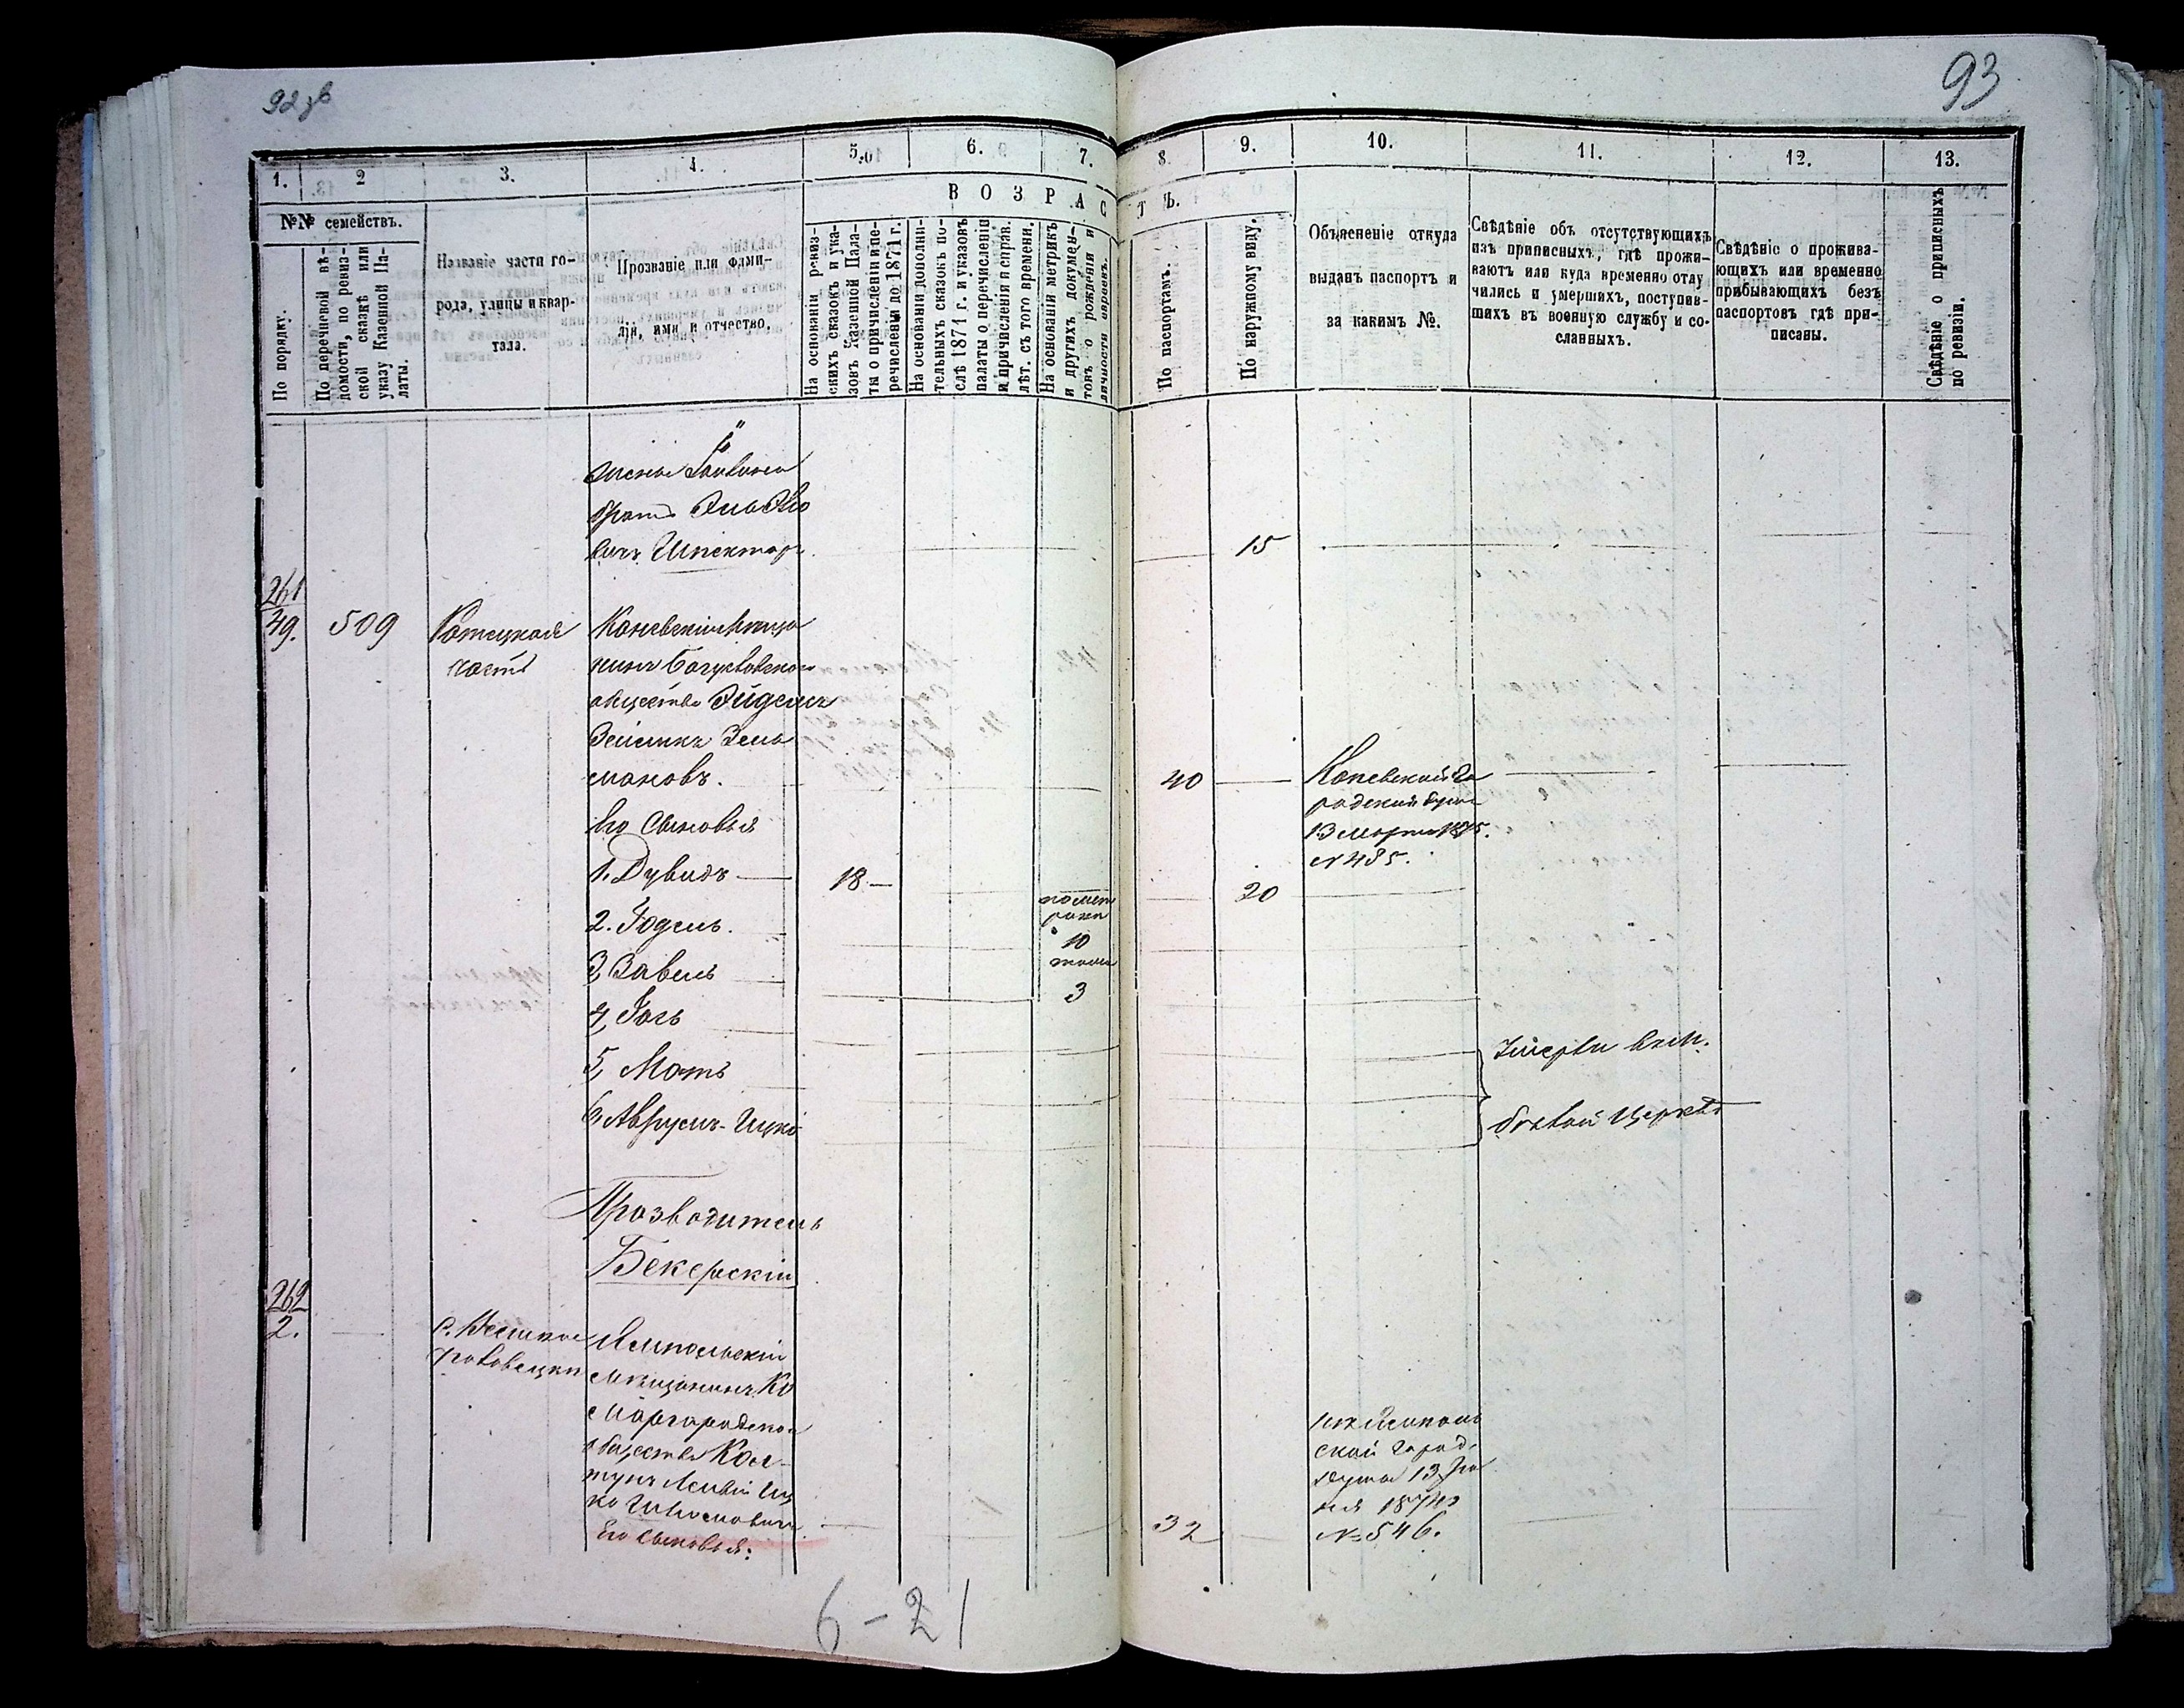 92 зв
93
1.
2
3.
4.
5.
6.
7.
8.
9.
10.
11.
12.
13.
№№ семействъ.
ВОЗРАС
ТЪ.
По порядку.
По перечневой вѣ-
домости, по ревиз-
ской сказкѣ или
указу Казенной Па-
латы.
Названіе части го-
рода, улицы и квар-
тала.
Прозваніе или фами-
лія, имя и отчество.
На основаніи ревиз-
скихъ сказокъ и ука-
зовъ Казенной Пала-
ты о причисленіи и пе-
речисленіи до 1871 г.
На основаніи дополни-
тельныхъ сказокъ по-
слѣ 1871 г. и указовъ
палаты о перечисленіи
и причисленія и справ.
лѣт. съ того времени.
На основаніи метрикъ
и другихъ докумен-
товъ о рожденіи и
личности евреевъ.
По паспортамъ.
По наружному виду.
Объясненіе откуда
выданъ паспортъ и
за какимъ №.
Свѣдѣніе объ отсутствующихъ
изъ приписныхъ, гдѣ прожи-
ваютъ или куда временно отлу
чились и умершихъ, поступив-
шихъ въ военную службу и со-
сланныхъ.
Свѣдѣніе о прожива-
ющихъ или временно
прибывающихъ безъ
паспортовъ гдѣ при-
писаны.
Свѣдѣніе о приписныхъ
по ревизіи.
братъ
вичъ Шпекторъ
15
261
49.
509
часть
Каневскій мѣща
нинъ Богуславскаго
общества Эйдель
Зельманъ Зель
мановъ.
40
Каневской Го
родской Думы
13 Марта 1875.
№ 485.
Его Сыновья
1. Дувидъ
18
20
2. Іодель.
по мет
рики
10
3, Завель
тоже
3
4, Іось
5, Моть
6, Аврумъ-Ицко
Умерли въ м.
бѣлой Церквѣ
Прозводитель
Бекерскій
262
2.
Ямпольскій
мѣщанинъ Ко
маргородскаго
общества Кол-
тунъ Лейвій Иц
ко
Его сыновья:
32
изъ Ямполь
ской город.
думы 13 Ію
ня 1874
№ 546.
6-21